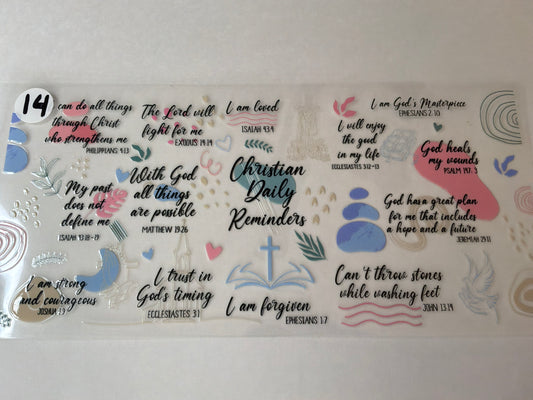 14
can do all things
through Christ
who strengthens me
PHILIPPIANS 4:13
The Lord will
fight for me
EXODUS 14:14
I am loved
ISAIAH 43:4
I am God's Masterpiece
EPHESIANS 2:10
I will enjoy
the good
in my life
ECCLESIASTES 3:12-13
God heals
my wounds
PSALM 147:3
My past
does not
define me
ISAIAH 43:18-19
With God
all things
are possible
MATTHEW 19:26
Christian
Daily
Reminders
God has a great plan
for me that includes
a hope and a future
JEREMIAH 29:11
I am strong
and courageous
JOSHUA 1:9
I trust in
God's timing
ECCLESIASTES 3:1
I am forgiven
EPHESIANS 1:7
Can't throw stones
while washing feet
JOHN 13:14